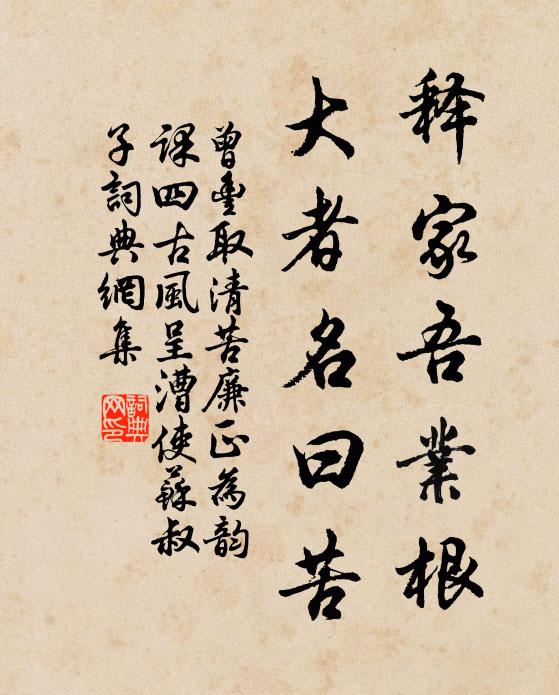 释家吾業根
大者名曰苦
曾豊取清苦廉正為韵
課四古風呈漕使蘇叔
子詞典網集
詞典網印